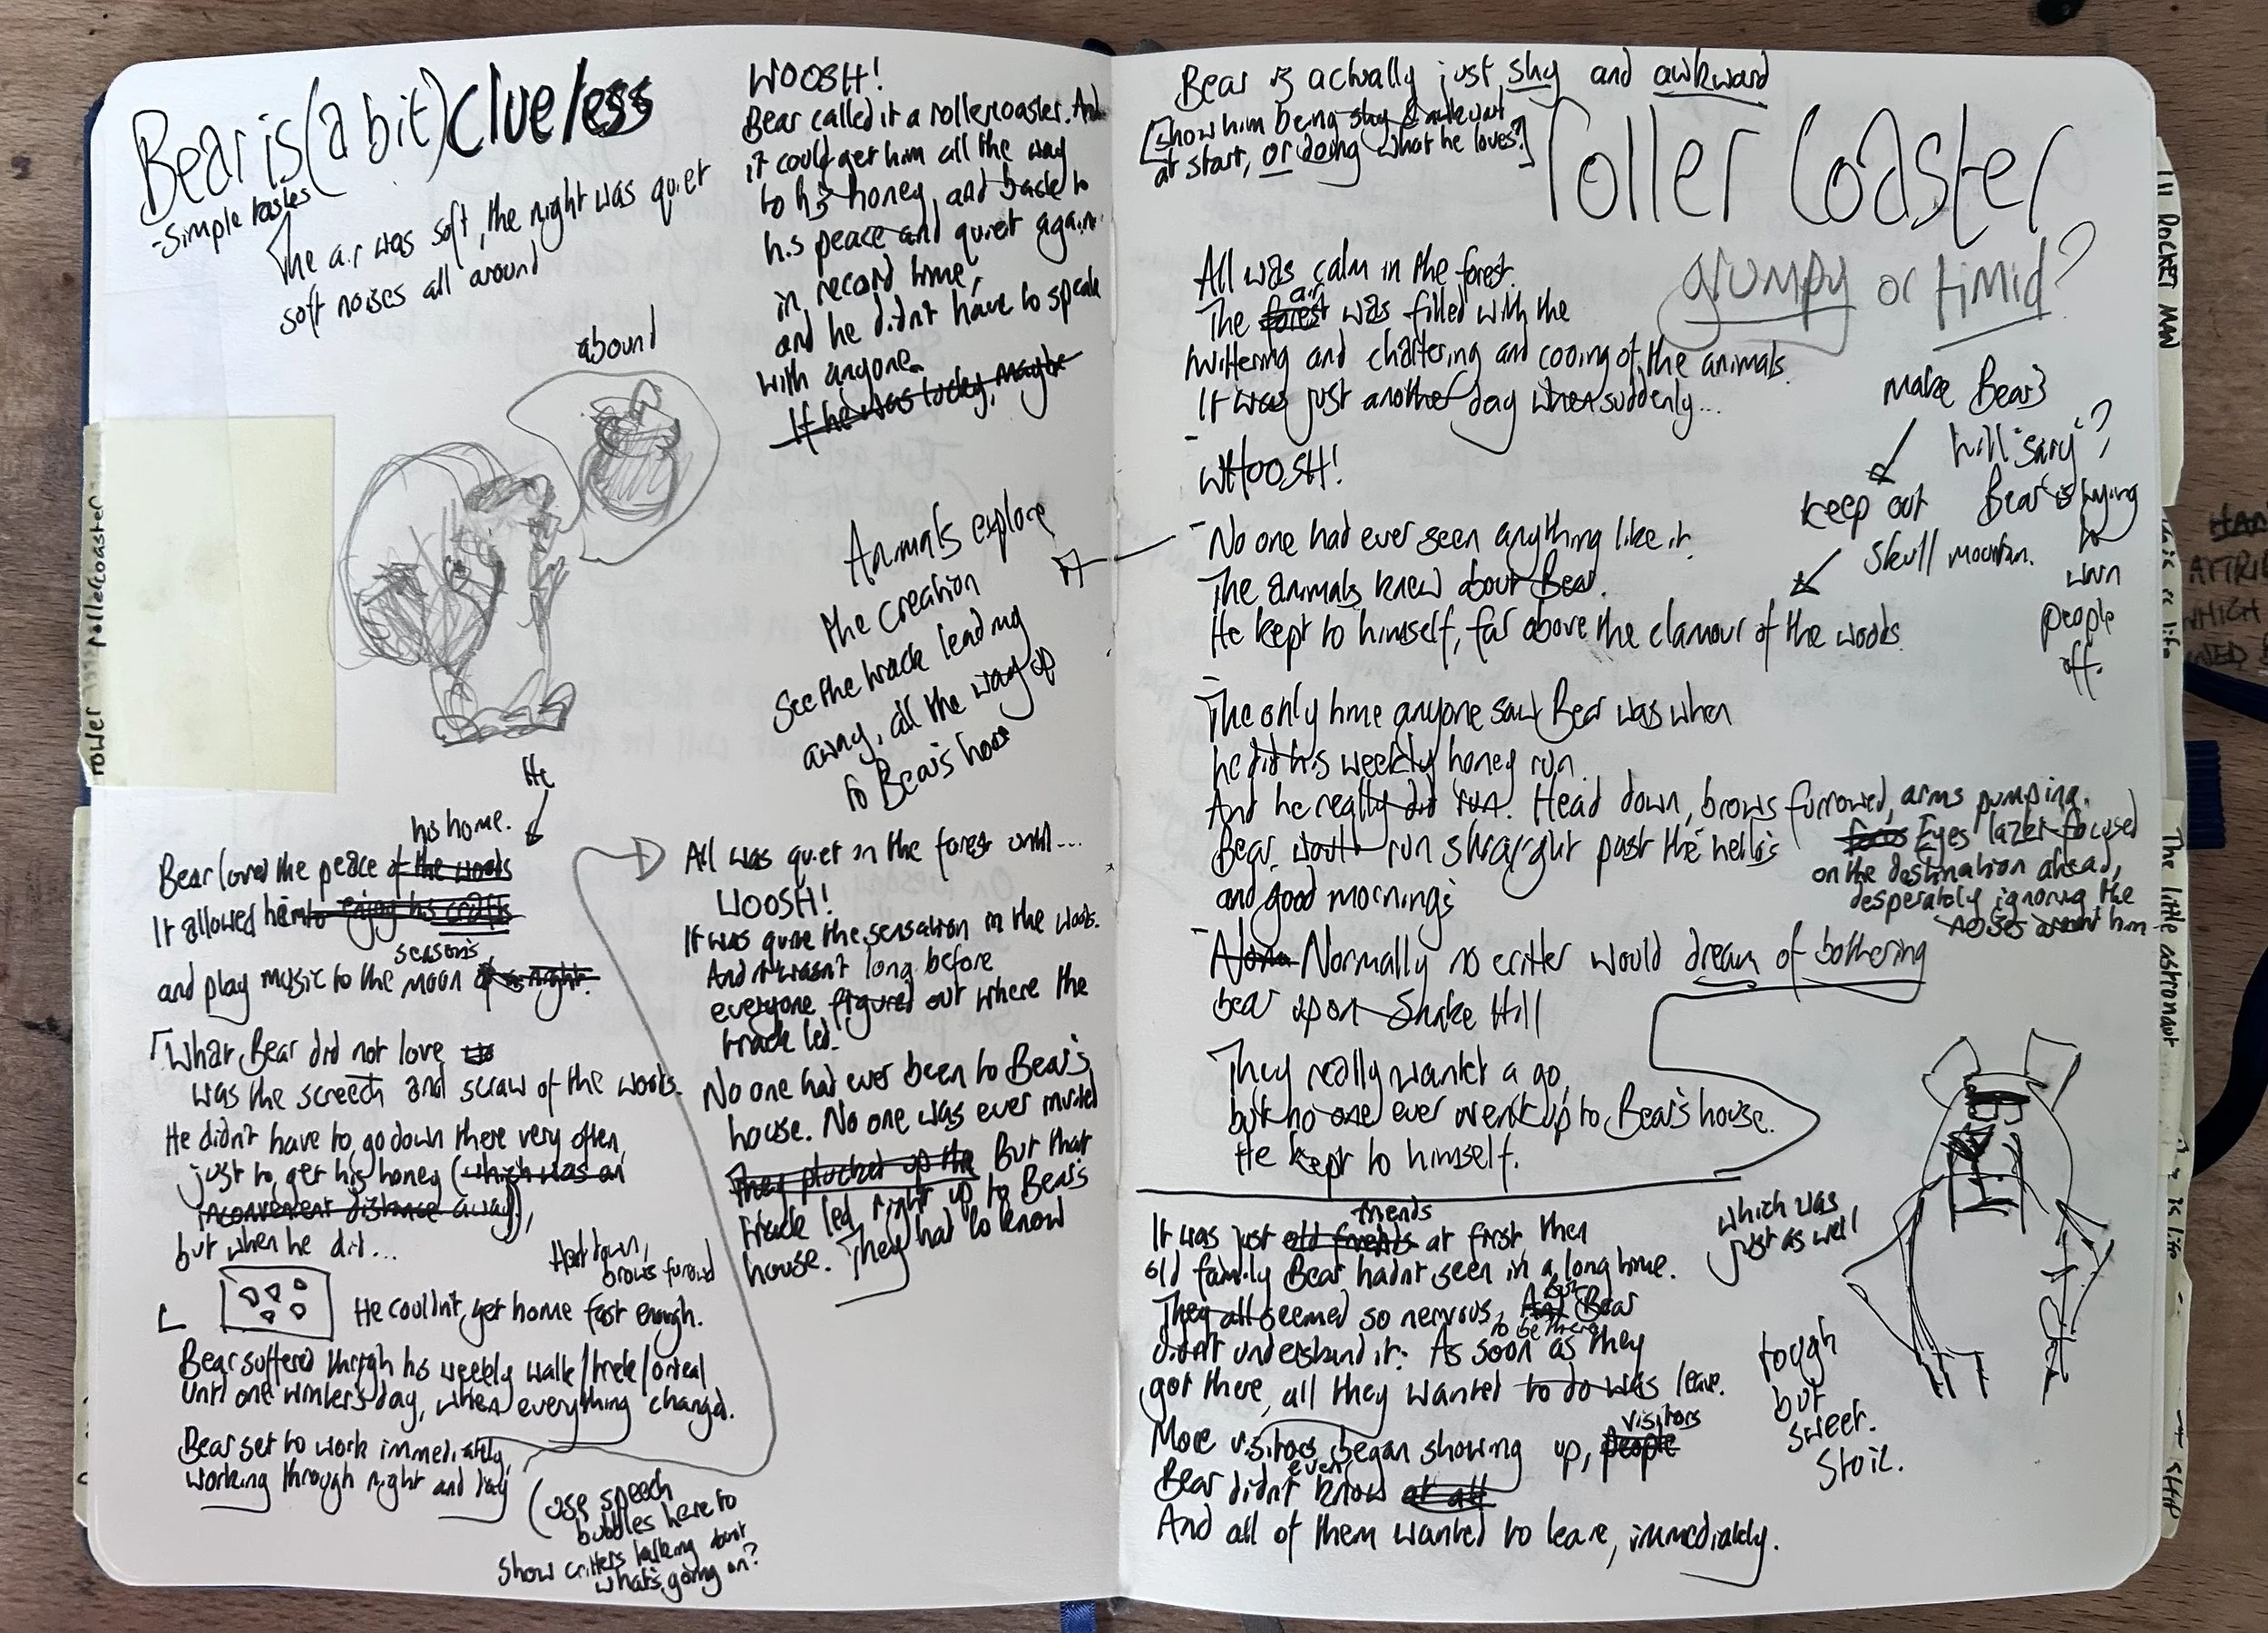 Bear is (a bit) clueless
- Simple tastes
The air was soft, the night was quiet
soft noises all around
abound
He
his home.
Bear loved the peace of the woods
It allowed him to enjoy his crafts
seasons
and play music to the moon of a night.
What Bear did not love
was the screech and scraw of the woods.
He didn't have to go down there very often,
just to get his honey (which was an
inconvenient distance away),
but when he did...
Head down,
brows furrowed
He couldn't get home fast enough.
Bear suffered through his weekly walk/trek/ordeal
until one winter's day, when everything changed.
Bear set to work immediately,
working through night and day
(use speech
bubbles here to
show critters talking about
what's going on?
WOOSH!
Bear called it a rollercoaster. And
it could get him all the way
to his honey, and back to
his peace and quiet again
in record time,
and he didn't have to speak
with anyone.
If he was lucky, maybe
Animals explore
the creation
See the track leading
away, all the way up
to Bear's house
All was quiet in the forest until...
WOOSH!
It was quite the sensation in the woods.
And it wasn't long before
everyone figured out where the
track led.
No one had ever been to Bear's
house. No one was ever invited
They plucked up the But that
track led right up to Bear's
house. They had to know
Bear is actually just shy and awkward
[show him being shy & awkward
at start, or doing what he loves?]
roller coaster
grumpy or timid?
All was calm in the forest.
air
The forest was filled with the
twittering and chattering and cooing of the animals.
It was just another day when suddenly...
WHOOSH!
No one had ever seen anything like it.
The animals knew about Bear.
He kept to himself, far above the clamour of the woods.
make Bear's
hill "scary"?
keep out
Bear is trying
to
warn
people
off.
Skull mountain.
The only time anyone saw Bear was when
he did his weekly honey run.
And he really did run. Head down, brows furrowed, arms pumping.
Bear would run straight past the hello's
and good morning's
focus Eyes lazer-focused
on the destination ahead,
desperately ignoring the
noises around him
Normally no critter would dream of bothering
bear up on Snake Hill
They really wanted a go,
but no one ever went up to Bear's house.
He kept to himself.
which was
just as well
friends
It was just old friends at first, then
old family Bear hadn't seen in a long time.
but
They all seemed so nervous, And Bear
to be there
didn't understand it. As soon as they
got there, all they wanted to do was leave.
visitors
More visitors began showing up, people
even
Bear didn't know at all
And all of them wanted to leave, immediately.
tough
but
sweet.
Stoic.
rollercoaster
ROCKET MAN
The little astronaut